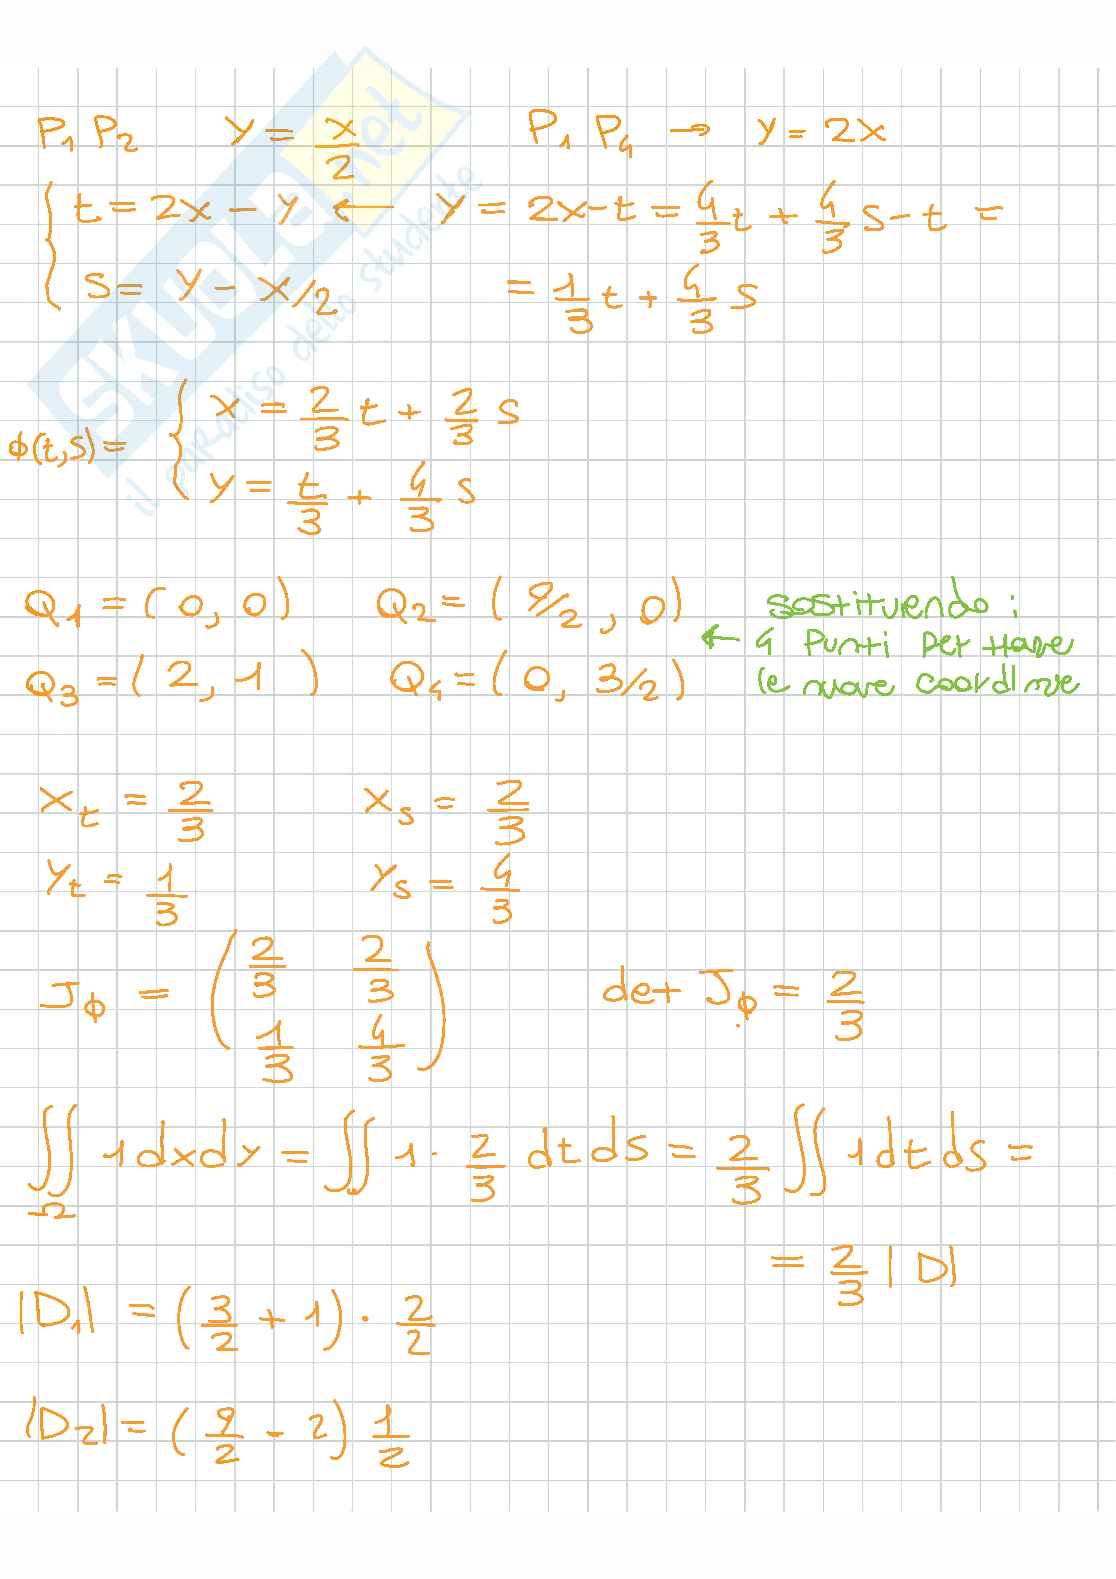 P₁ P₂ y = x/2 P₁ P₄ → y = 2x
{ t = 2x - y ← y = 2x - t = 4/3 t + 4/3 s - t =
s = y - x/2 = 1/3 t + 4/3 s
ϕ(t,s) = { x = 2/3 t + 2/3 s
y = t/3 + 4/3 s
Q₁ = (0, 0) Q₂ = (9/2, 0) sostituendo :
← 4 punti per trave
Q₃ = (2, 1) Q₄ = (0, 3/2) le nuove coordinate
x_t = 2/3 x_s = 2/3
y_t = 1/3 y_s = 4/3
J_ϕ = ( 2/3 2/3 det J_ϕ = 2/3
1/3 4/3 )
∬_Ω 1 dx dy = ∬ 1 · 2/3 dt ds = 2/3 ∬ 1 dt ds =
= 2/3 |D|
|D₁| = (3/2 + 1) · 2/2
|D₂| = (9/2 - 2) 1/2
SKUOLA.net
il paradiso dello studente